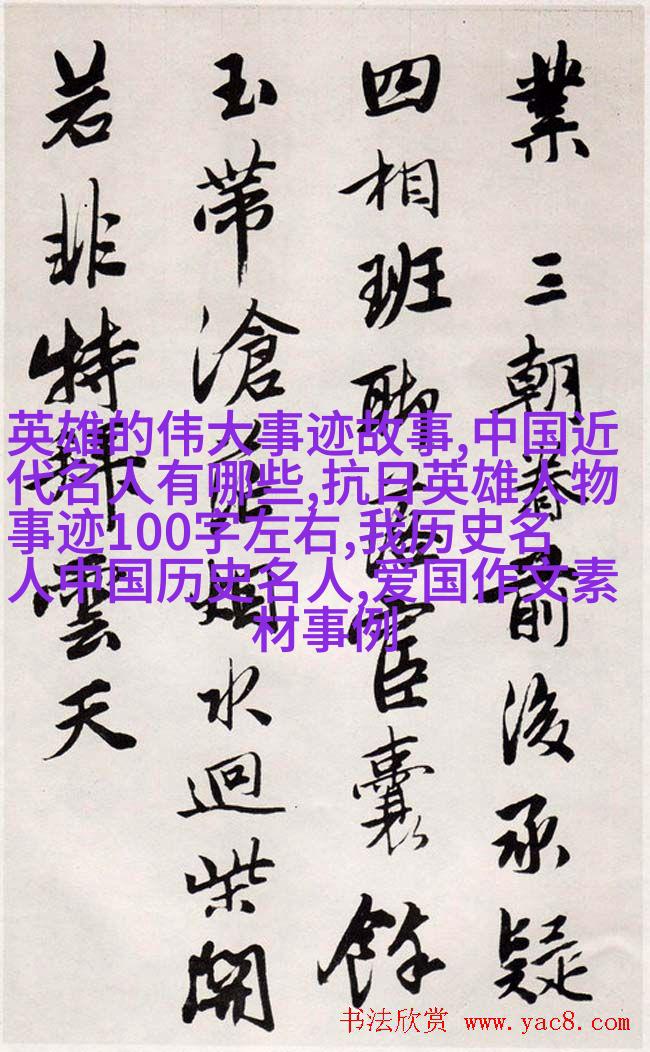 業三朝眷前後承疑
四相班聯臣囊餘
玉帶滄烟水迴柴關
若非特雲天
英雄的伟大事迹故事,中国近
代名人有哪些,抗日英雄人物
事迹100字左右,我历史名
人中国历史名人,爱国作文素
材事例
书法欣赏 www.yac8.com